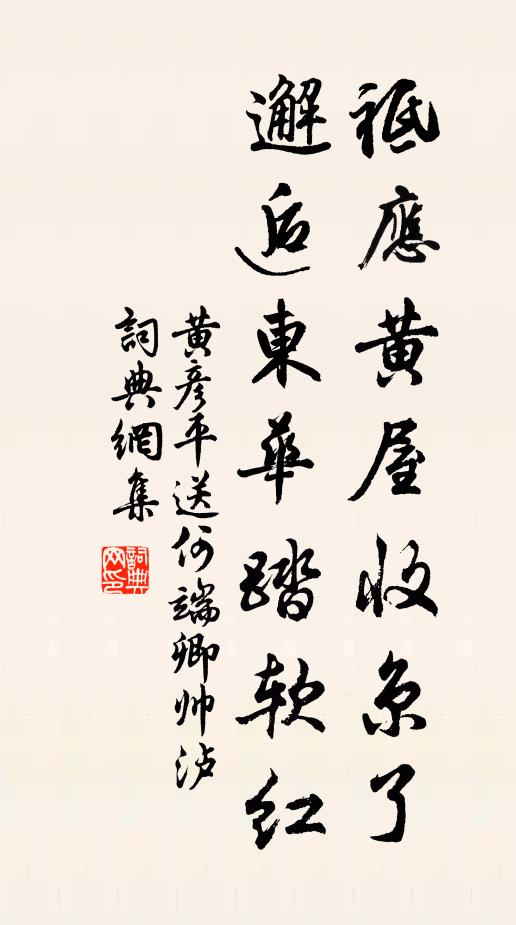 祗應黃屋收京了
邂逅東華踏軟紅
黃彥平送何端卿帥泸
詞典網集
詞典網印